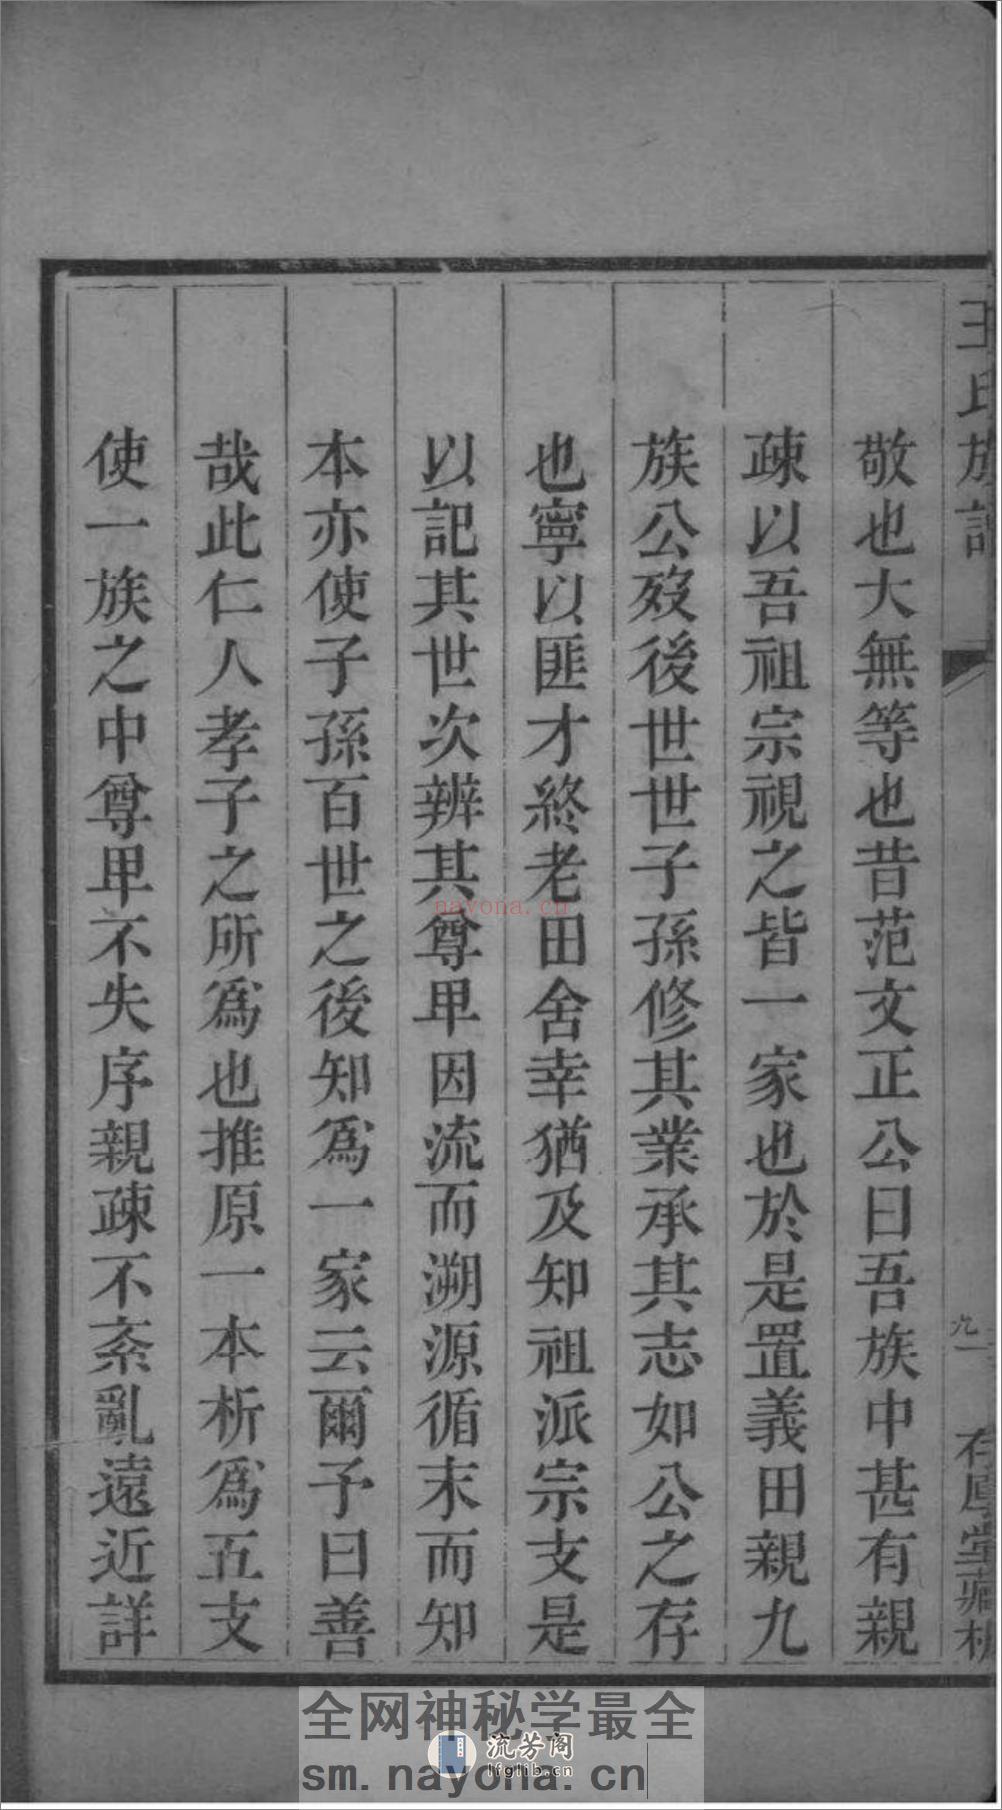 王氏族譜
九一
存鳳堂藏板
敬也大無等也昔范文正公曰吾族中甚有親
疎以吾祖宗視之皆一家也於是置義田親九
族公歿後世世子孫修其業承其志如公之存
也寧以匪才終老田舍幸猶及知祖派宗支是
以記其世次辨其尊卑因流而溯源循末而知
本亦使子孫百世之後知爲一家云爾予曰善
哉此仁人孝子之所爲也推原一本析爲五支
使一族之中尊卑不失序親疎不紊亂遠近詳
nayona.cn
全网神秘学最全
流芳阁
lfglib.cn
sm.nayona.cn